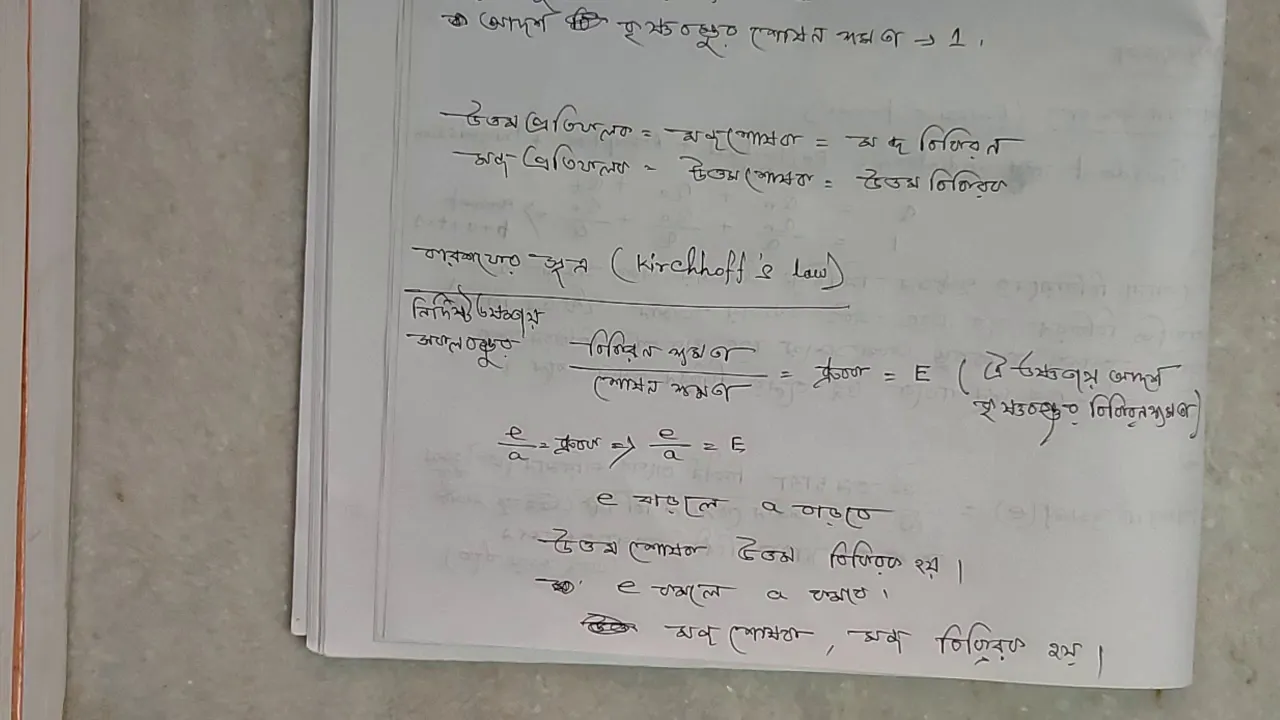 আদর্শ কৃষ্ণবস্তুর শোষন ক্ষমতা → 1.
উত্তম প্রতিফলক = মন্দ শোষক = মন্দ বিকিরন
মন্দ প্রতিফলক = উত্তম শোষক = উত্তম বিকিরক
কারশফের সূত্র (Kirchhoff's law)
নির্দিষ্ট উষ্ণতায়
সকল বস্তুর বিকিরন ক্ষমতা / শোষন ক্ষমতা = ধ্রুবক = E (ঐ উষ্ণতায় আদর্শ
কৃষ্ণবস্তুর বিকিরন ক্ষমতা)
e/a = ধ্রুবক => e/a = E
e বাড়লে a বাড়বে
উত্তম শোষক উত্তম বিকিরক হয়।
e কমলে a কমবে।
মন্দ শোষক, মন্দ বিকিরক হয়।